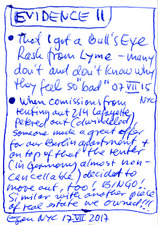 EVIDENCE II
• That I got a Bull's Eye
Rash from Lyme - many
don't and don't know why
they feel so "bad" 07 VII 15
• When comissions from NYC
renting out 214 Lafayette
petered out (dwindled),
someone made a great offer
for our Berlin apartment +
on top of that the tenter
(in Germany almost non-
cancellable) decided to
move out, too! BINGO!
Similar with another piece
of real estate we owned!!!
NYC 17 VII 2017